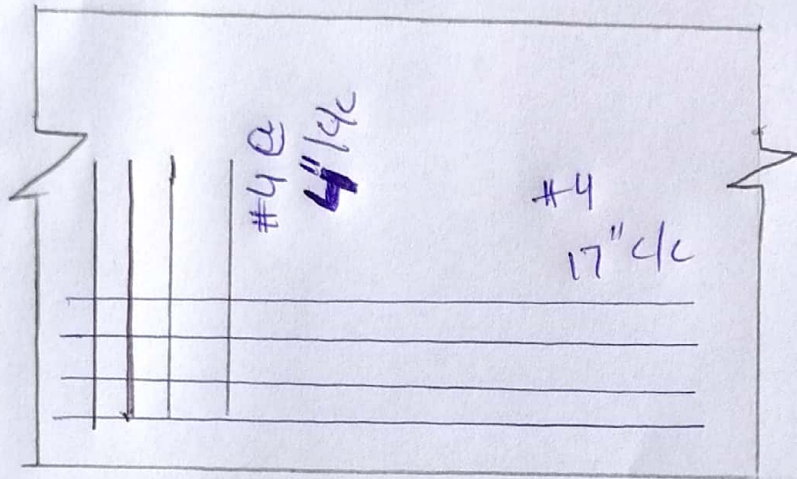 #4 @
4" c/c
#4
17" c/c